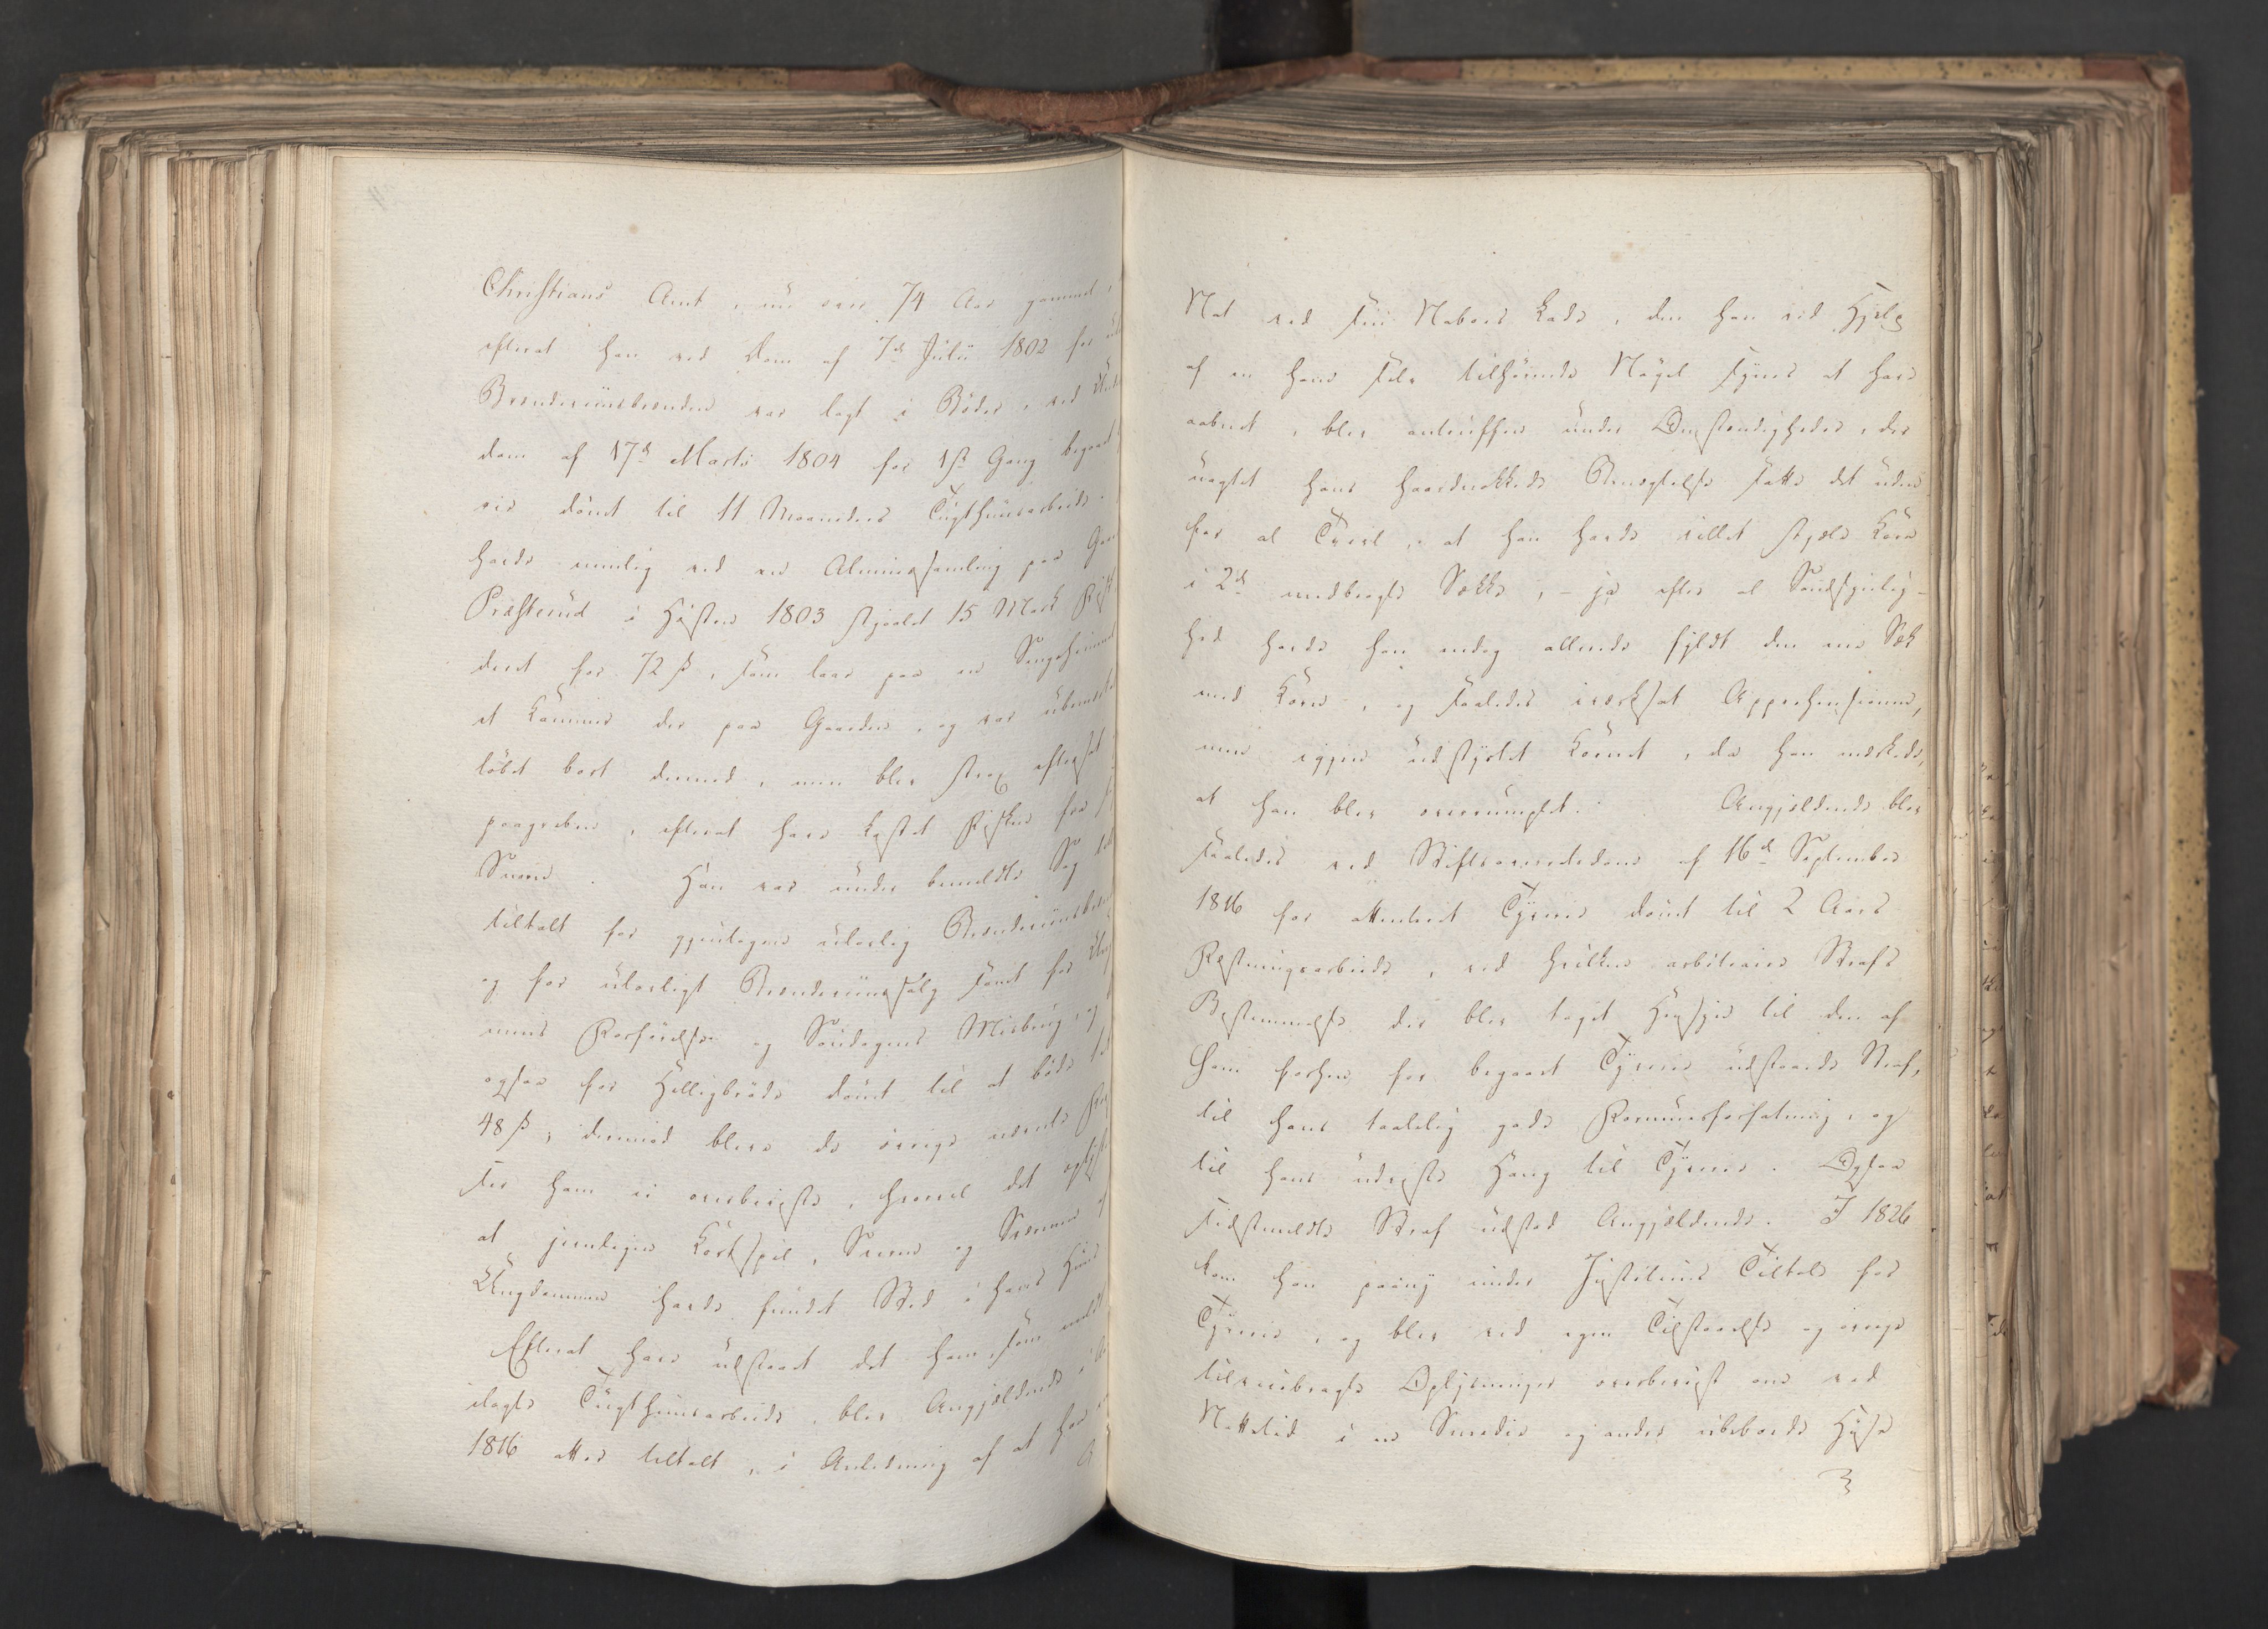 Christians Amt, nu over 74 Aar gammel,
efterat han ved Dom af 7de Julii 1802 for
Brændeviinsbrænden var lagt i Bøder, ved
dom af 17de Marts 1804 for 1ste Gang begaaet
vis dømt til 11 Maaneders Tugthuusarbeide.
havde nemlig ved en Almuesamling paa
Præsterud i Høsten 1803 stjaalet 15 Mark
deret for 72 ß, som laae paa en
et Kammer der paa Gaarden, og var ubemærket
løbet bort dermed, men blev strax eftersat
paagreben, efterat have kastet Fisken fra
Han var under bemeldte Sag
tiltalt for gjentagen ulovlig
og for ulovligt Brændeviinssalg samt for
mens Forførelse og Søndagens Misbrug, og
ogsaa for Helligbrøde dømt til at bøde
48 ß; derimod bleve de øvrige nævnte
ser ham ei overbeviiste, hvorvel det oplyst
at jevnligen Kortspil, Sviren og Sværmen af
Ungdommen havde fundet Sted i hans Huus
Efterat have udstaaet det ham, som meldt
ilagte Tugthuusarbeide, blev Angjældende i
1816 atter tiltalt, i Anledning af at han
Nat ved sin Naboes Lade, den han ved Hjelp
af en hans Søn tilhørende Nøgel synes at have
aabnet, blev antruffen under Omstændigheder, der
uagtet hans haardnakkede Benægtelse satte det uden
for al Tvivl, at han havde villet stjæle Korn
i 2de medbragte Sække, – ja efter al Sandsynlig-
hed havde han endog allerede fyldt den ene Sæk
med Korn, og saaledes iværksat Apprehensionen,
men igjen udstyrtet Kornet, da han mærkede,
at han blev overrumplet. Angjældende blev
saaledes ved Stiftsoverretsdom af 16de September
1816 for attenteret Tyverie dømt til 2 Aars
Fæstningsarbeide, ved hvilken arbitraire Strafs
Bestemmelse der blev taget Hensyn til den af
Ham forhen for begaaet Tyverie udstaaede Straf,
til hans taalelig gode Formuesforfatning, og
til hans udviste Hang til Tyverie. Ogsaa
sidstmeldte Straf udstod Angjældende. I 1826
kom han paany under Justitiens Tiltale for
Tyverie, og blev ved egen Tilstaaelse og øvrige
tilveiebragte Oplysninger overbeviist om ved
Nattetid i en Smedie og andre ubeboede Huse